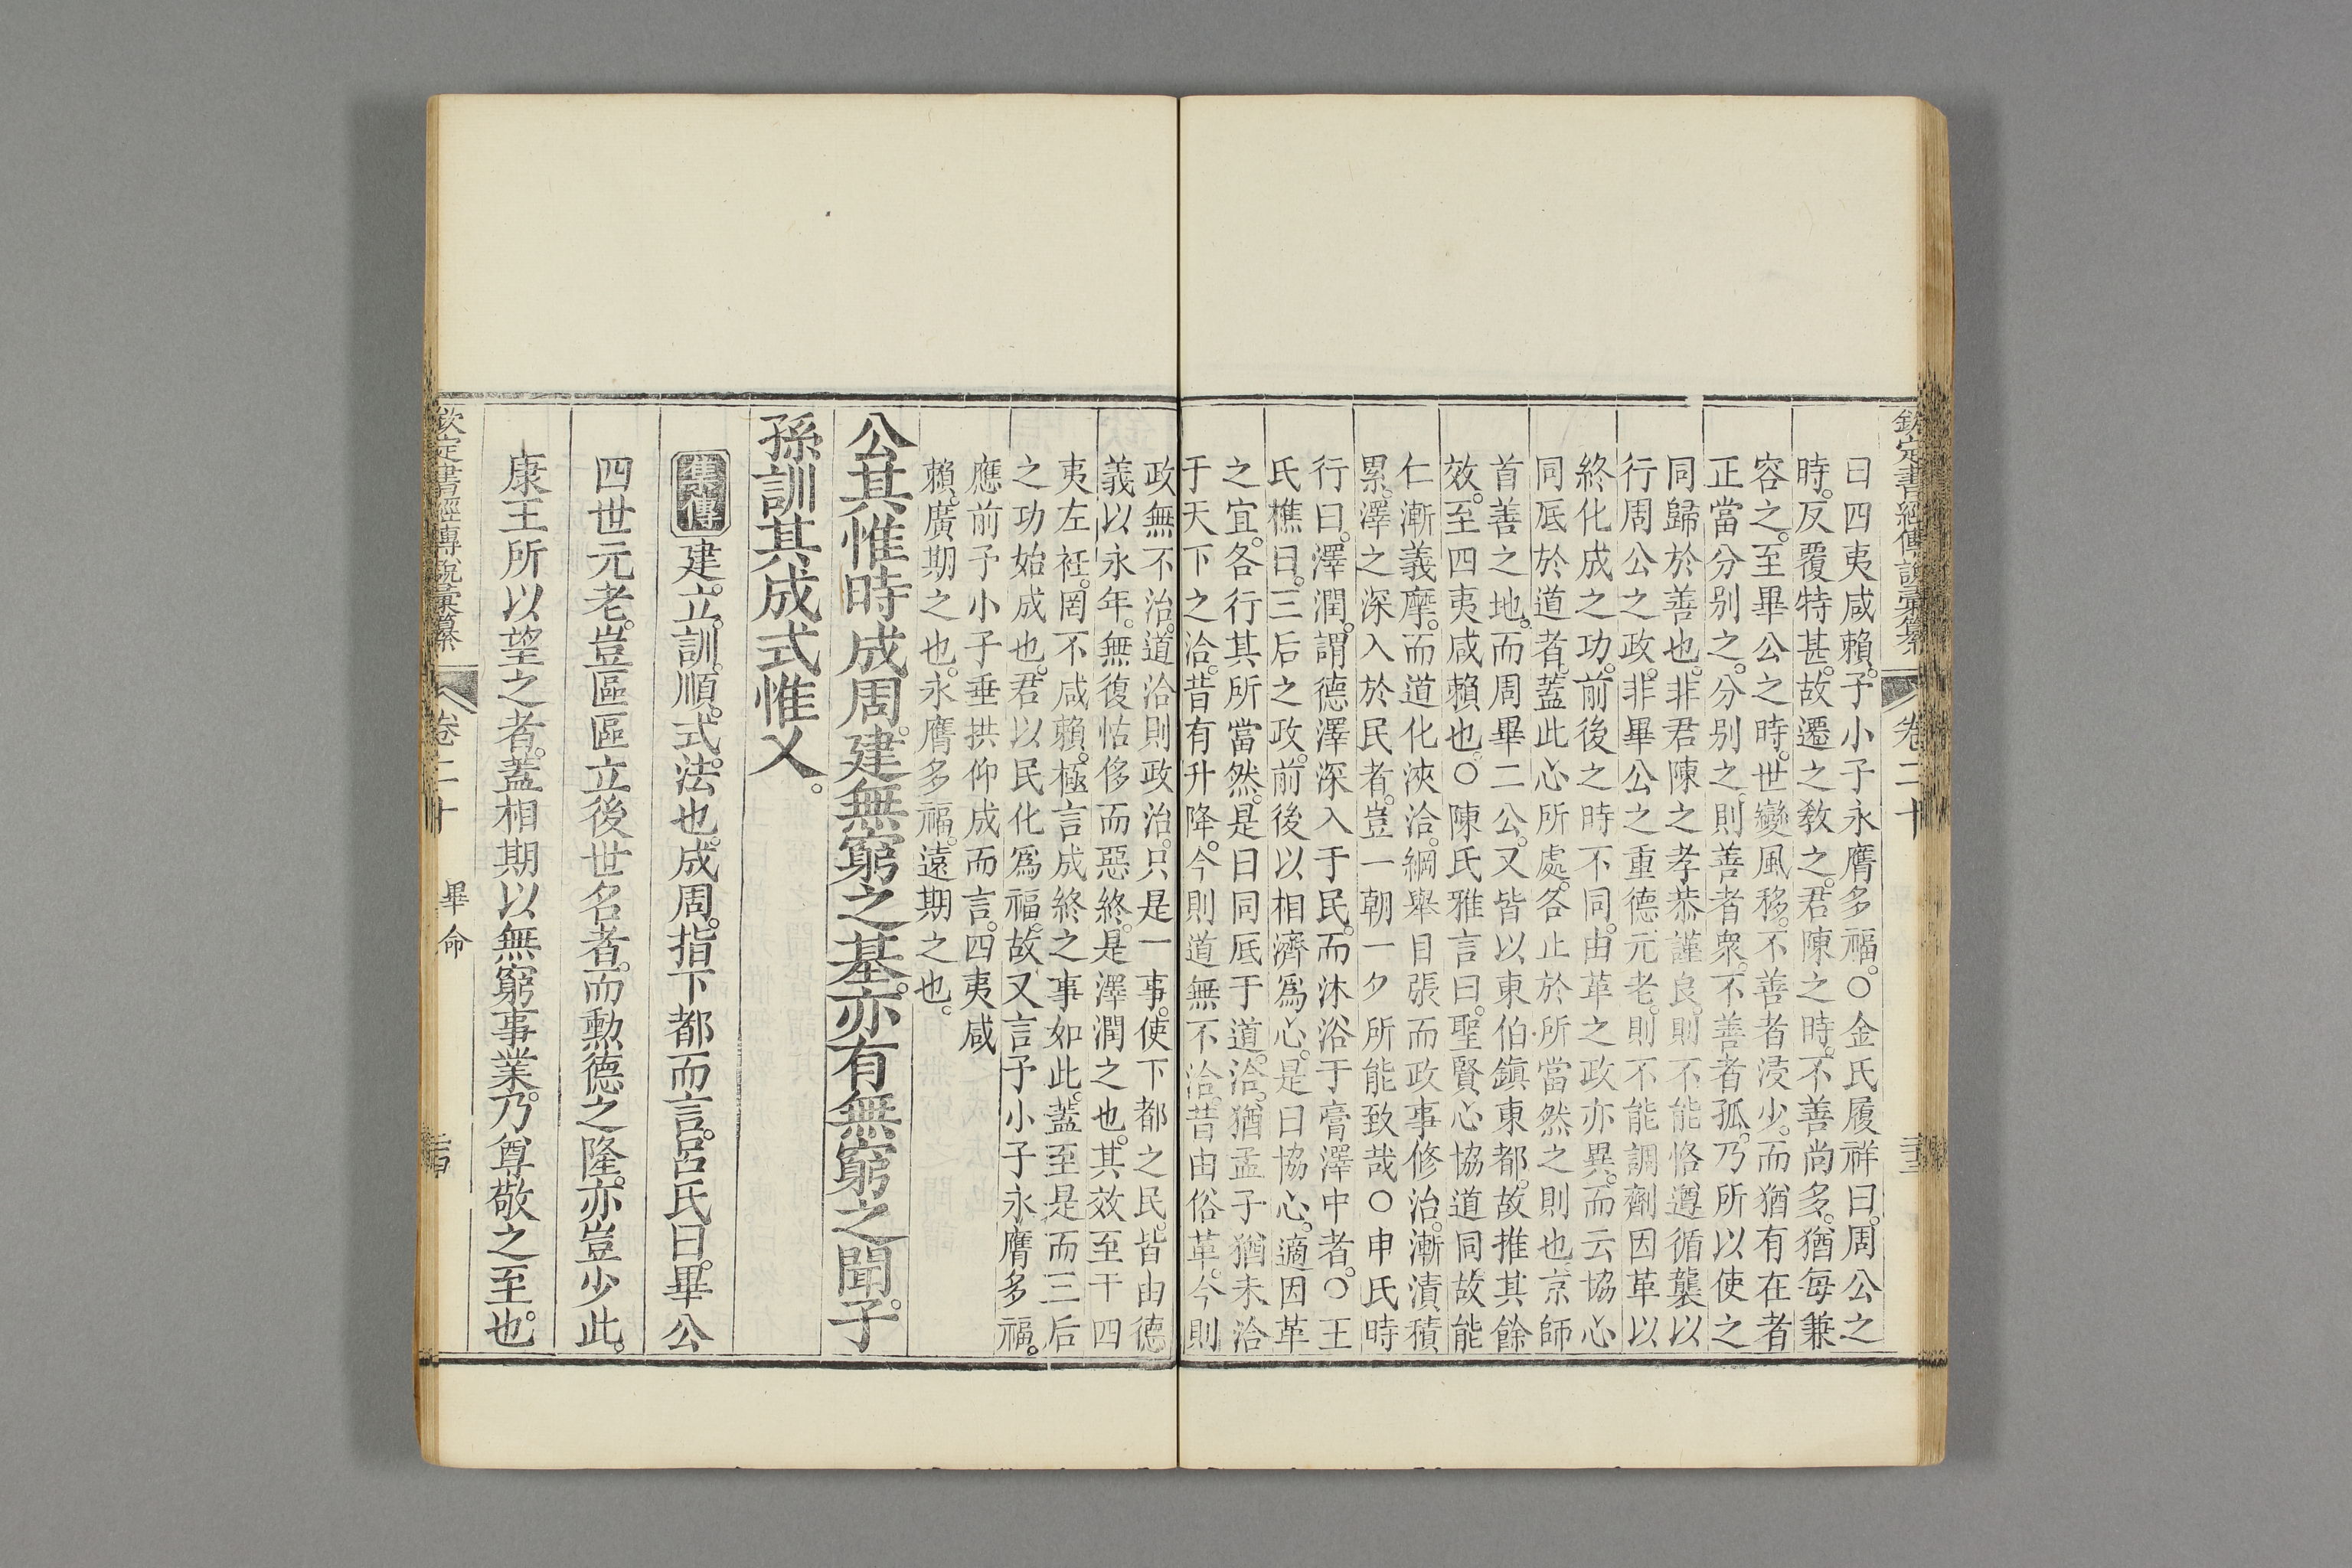 欽定書經傳說彙纂 卷二十
曰四夷咸賴予小子永膺多福○金氏履祥曰周公之
時反覆特甚故遷之敎之君陳之時不善尚多猶每兼
容之至畢公之時世變風移不善者浸少而猶有在者
正當分別之分別之則善者衆不善者孤乃所以使之
同歸於善也非君陳之孝恭謹良則不能恪遵循襲以
行周公之政非畢公之重德元老則不能調劑因革以
終化成之功前後之時不同由革之政亦異而云協心
同底於道者蓋此心所處各止於所當然之則也京師
首善之地而周畢二公又皆以東伯鎭東都故推其餘
效至四夷咸賴也○陳氏雅言曰聖賢心協道同故能
仁漸義摩而道化浹洽綱舉目張而政事修治漸漬積
累澤之深入於民者豈一朝一夕所能致哉○申氏時
行曰澤潤謂德澤深入于民而沐浴于膏澤中者○王
氏樵曰三后之政前後以相濟爲心是曰協心適因革
之宜各行其所當然是曰同底于道洽猶孟子猶未洽
于天下之洽昔有升降今則道無不洽昔由俗革今則
政無不治道洽則政治只是一事使下都之民皆由德
義以永年無復怙侈而惡終是澤潤之也其效至于四
夷左衽罔不咸賴極言成終之事如此蓋至是而三后
之功始成也君以民化爲福故又言予小子永膺多福
應前予小子垂拱仰成而言四夷咸
賴廣期之也永膺多福遠期之也
公其惟時成周建無窮之基亦有無窮之聞子
孫訓其成式惟乂
集傳建立訓順式法也成周指下都而言呂氏曰畢公
四世元老豈區區立後世名者而勳德之隆亦豈少此
康王所以望之者蓋相期以無窮事業乃尊敬之至也
欽定書經傳說彙纂 卷二十 畢命